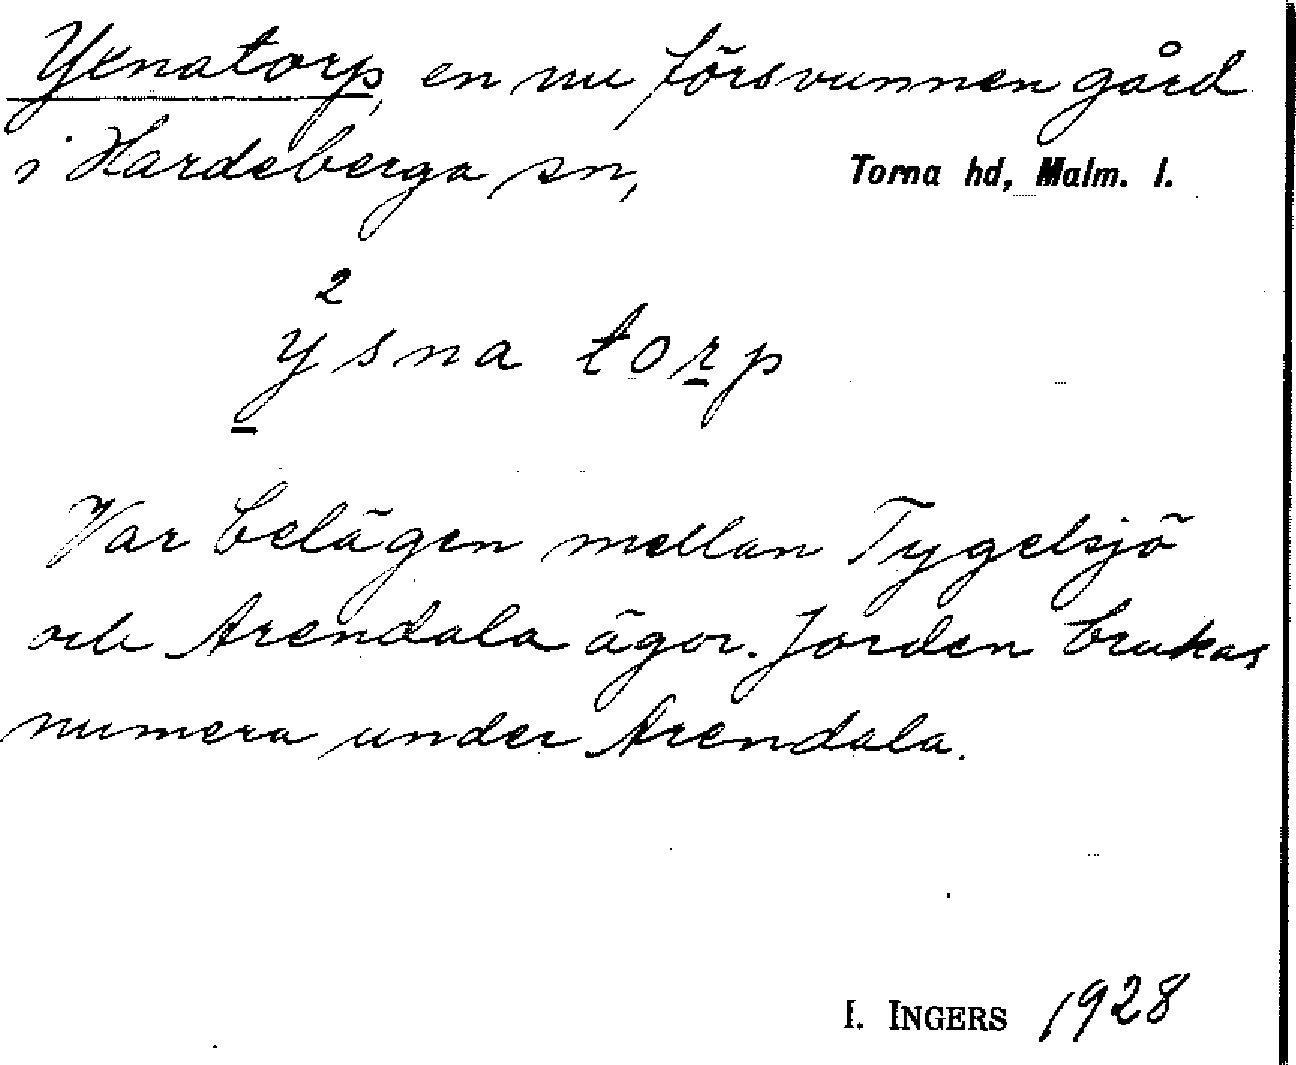 Ysnatorp, en nu försvunnen gård
i Hardeberga sn, Torna hd, Malm. l.
2
ysna torp
Var belägen mellan Tygelsjö
och Arendala ägor. Jorden brukas
numera under Arendala.
I. INGERS 1928